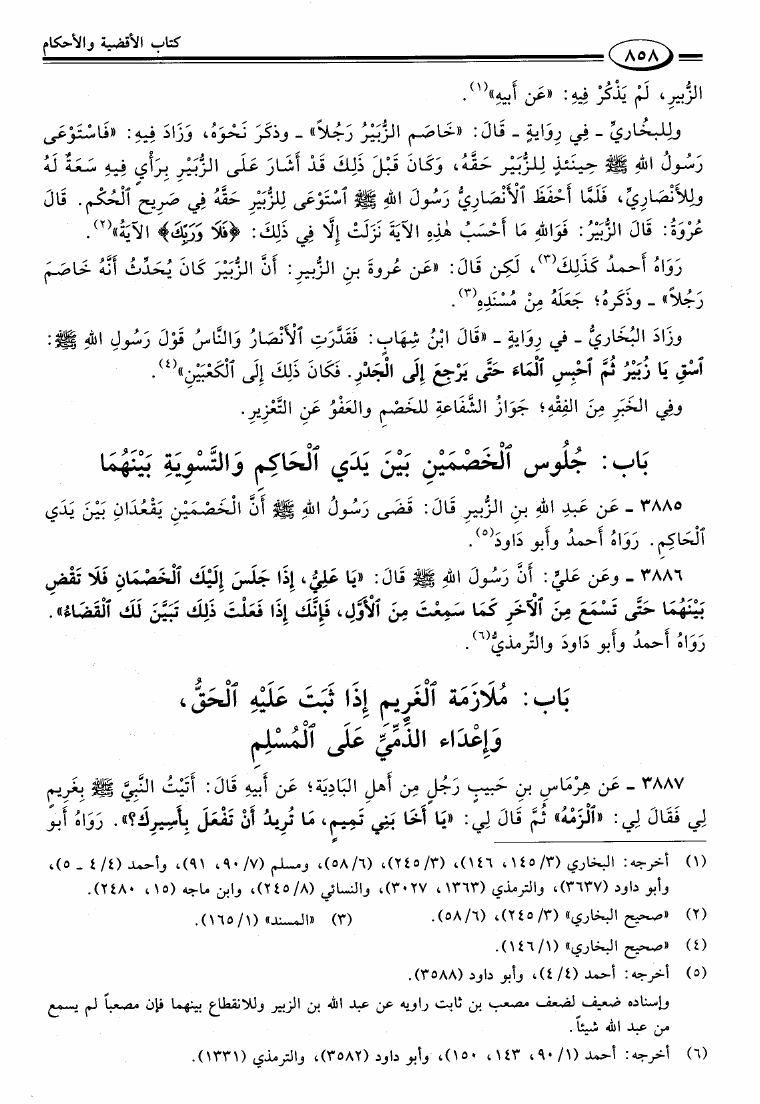 كتاب الأقضية والأحكام
٨٥٨
الزُّبيرِ، لَمْ يَذْكُرْ فِيهِ: «عَن أَبيهِ»(١).
وللبخاريِّ - فِي رِوَايةٍ - قَالَ: «خَاصَم الزُّبَيْرُ رَجُلاً» - وذكَرَ نَحْوَهُ، وَزَادَ فِيهِ: «فَاسْتَوْعَى
رَسُولُ اللهِ ﷺ حِينَئذٍ لِلزُّبَيْر حَقَّهُ، وَكَانَ قَبْلَ ذَلِكَ قَدْ أَشَارَ عَلَى الزُّبَيْرِ بِرَأْيٍ فِيهِ سَعَةٌ لَهُ
وللأنْصَارِيِّ، فَلَمَّا أَحْفَظَ ٱلْأَنْصَارِيُّ رَسُولَ اللهِ ﷺ ٱسْتَوْعَى لِلزُّبَيْرِ حَقَّهُ فِي صَرِيحِ ٱلْحُكْمِ. قَالَ
عُرْوَةُ: قَالَ الزُّبَيْرُ: فَوَاللهِ مَا أَحْسَبُ هٰذِهِ الآيَةَ نَزَلَتْ إلَّا فِي ذَلِكَ: ﴿فَلَا وَرَبِّكَ﴾ الآيَةُ»(٢).
رَوَاهُ أحمدُ كَذَلِكَ(٣)، لَكِن قَالَ: «عَن عُروةَ بنِ الزُّبيرِ: أَنَّ الزُّبَيْرَ كَانَ يُحَدِّثُ أَنَّهُ خَاصَمَ
رَجُلاً» - وذكَرهُ؛ جَعَلَهُ مِنْ مُسْنَدِهِ(٣).
وزَادَ البُخَاريُّ - في رِوَايةٍ - «قَالَ ابْنُ شِهَابٍ: فَقَدَّرَتِ ٱلْأَنْصَارُ وَالنَّاسُ قَوْلَ رَسُولِ اللهِ ﷺ:
ٱسْقِ يَا زُبَيْرُ ثُمَّ ٱحْبِسِ ٱلْمَاءَ حَتَّى يَرْجِعَ إِلَى ٱلْجَدْرِ. فَكَانَ ذَلِكَ إِلَى ٱلْكَعْبَيْنِ»(٤).
وفِي الخَبَرِ مِنَ الفِقْهِ؛ جَوَازُ الشَّفَاعَةِ للخَصْمِ والعَفْوُ عَنِ التَّعْزِيرِ.
بَاب: جُلُوس ٱلْخَصْمَيْنِ بَيْنَ يَدَي ٱلْحَاكِمِ وَالتَّسْوِيَة بَيْنَهُمَا
٣٨٨٥ - عَن عَبدِ اللهِ بنِ الزُّبيرِ قَالَ: قَضَى رَسُولُ اللهِ ﷺ أَنَّ الْخَصْمَيْنِ يَقْعُدَانِ بَيْنَ يَدَي
ٱلْحَاكِمِ. رَوَاهُ أَحمدُ وأَبو دَاودَ(٥).
٣٨٨٦ - وعَن عَليٍّ: أَنَّ رَسُولَ اللهِ ﷺ قَالَ: «يَا عَلِيُّ، إذَا جَلَسَ إِلَيْكَ ٱلْخَصْمَانِ فَلَا تَقْضِ
بَيْنَهُمَا حَتَّى تَسْمَعَ مِنَ ٱلْآخَرِ كَمَا سَمِعْتَ مِنَ ٱلْأَوَّلِ، فَإِنَّكَ إِذَا فَعَلْتَ ذَلِكَ تَبَيَّنَ لَكَ ٱلْقَضَاءُ».
رَوَاهُ أَحمدُ وأَبو دَاودَ والتِّرمذيُّ(٦).
بَاب: مُلَازَمَة ٱلْغَرِيمِ إِذَا ثَبَتَ عَلَيْهِ ٱلْحَقُّ،
وَإِعْدَاء الذِّمِّيِّ عَلَى ٱلْمُسْلِمِ
٣٨٨٧ - عَن هِرْمَاسِ بنِ حَبيبٍ رَجُلٍ مِن أَهلِ البَادِيَة؛ عَن أَبيهِ قَالَ: أَتَيْتُ النَّبِيَّ ﷺ بِغَرِيمٍ
لِي فَقَالَ لِي: «ٱلْزَمْهُ» ثُمَّ قَالَ لِي: «يَا أَخَا بَنِي تَمِيمٍ، مَا تُرِيدُ أَنْ تَفْعَلَ بِأَسِيرِكَ؟». رَوَاهُ أَبو
(١) أخرجه: البخاري (٣/ ١٤٥، ١٤٦)، (٣/ ٢٤٥)، (٦/ ٥٨)، ومسلم (٧/ ٩٠، ٩١)، وأحمد (٤/ ٤ - ٥)،
وأبو داود (٣٦٣٧)، والترمذي (١٣٦٣، ٣٠٢٧)، والنسائي (٨/ ٢٤٥)، وابن ماجه (١٥، ٢٤٨٠).
(٢) «صحيح البخاري» (٣/ ٢٤٥)، (٦/ ٥٨). (٣) «المسند» (١/ ١٦٥).
(٤) «صحيح البخاري» (١/ ١٤٦).
(٥) أخرجه: أحمد (٤/ ٤)، وأبو داود (٣٥٨٨).
وإسناده ضعيف لضعف مصعب بن ثابت راويه عن عبد الله بن الزبير وللانقطاع بينهما فإن مصعباً لم يسمع
من عبد الله شيئاً.
(٦) أخرجه: أحمد (١/ ٩٠، ١٤٣، ١٥٠)، وأبو داود (٣٥٨٢)، والترمذي (١٣٣١).